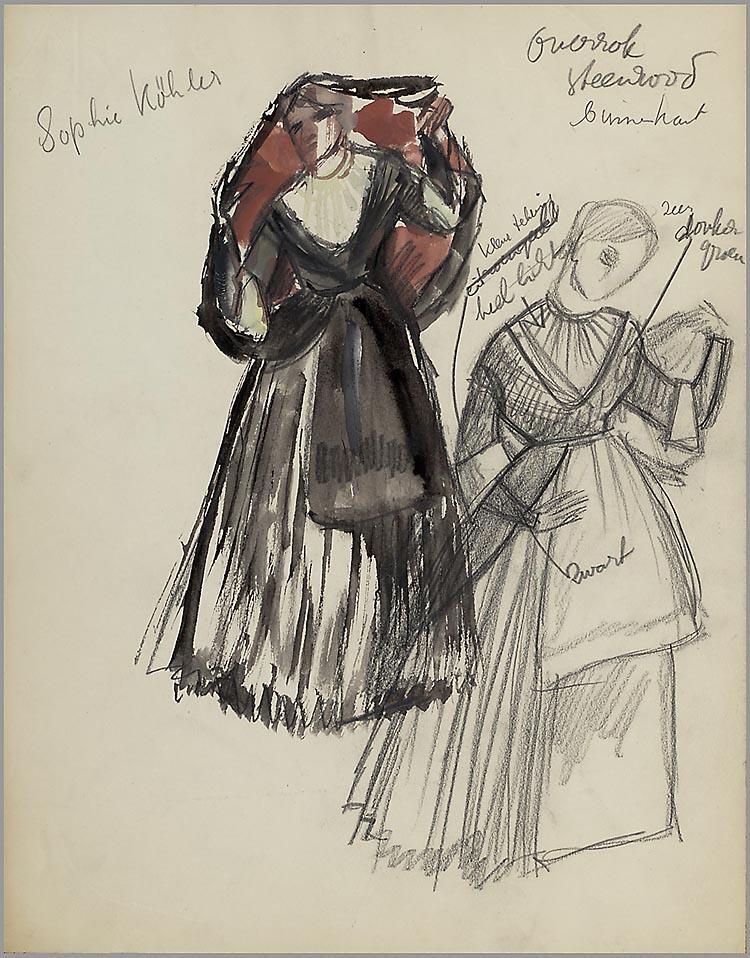 Sophie Köhler
Overrok
steenrood
binnenkant
zeer
donker
groen
kleur
heel licht
zwart